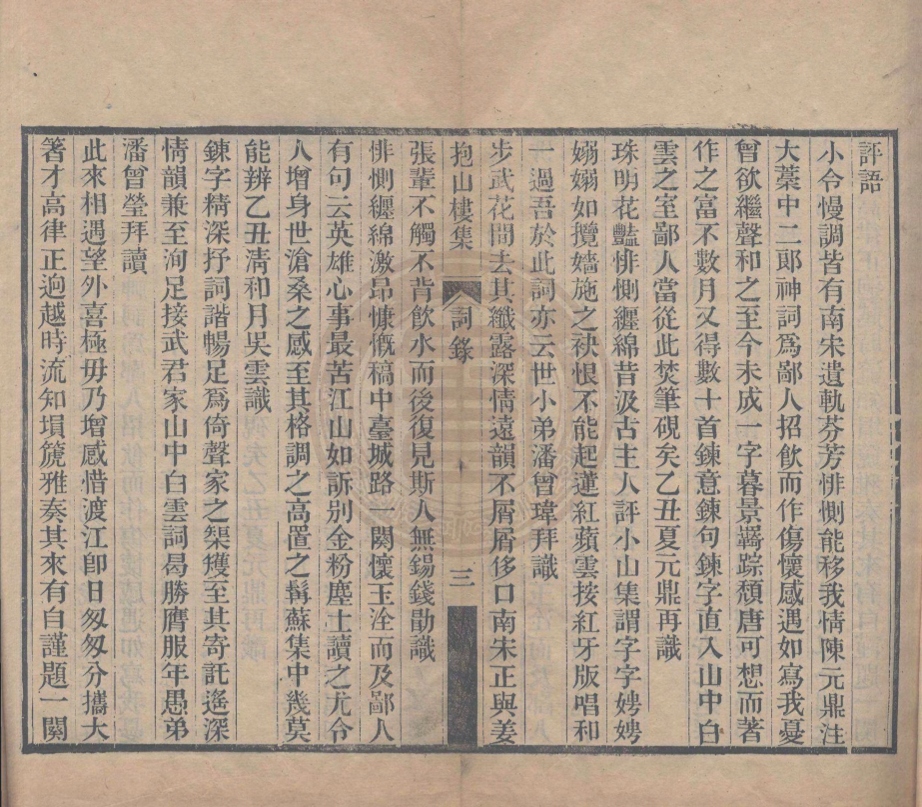 評語
小令慢調皆有南宋遺軌芬芳悱惻能移我情陳元鼎注
大藁中二郎神詞爲鄙人招飲而作傷懷感遇如寫我憂
曾欲繼聲和之至今未成一字暮景羈踪頹唐可想而著
作之富不數月又得數十首鍊意鍊句鍊字直入山中白
雲之室鄙人當從此焚筆硯矣乙丑夏元鼎再識
珠明花豔悱惻纏綿昔汲古主人評小山集謂字字娉娉
嫋嫋如攬嬙施之袂恨不能起蓮紅蘋雲按紅牙版唱和
一過吾於此詞亦云世小弟潘曾瑋拜識
步武花間去其纖露深情遠韻不屑屑侈口南宋正與姜
抱山樓集 詞錄 三
張輩不觸不背飲水而後復見斯人無錫錢勖識
悱惻纏綿激昂慷慨稿中臺城路一闋懷玉淦而及鄙人
有句云英雄心事最苦江山如訴别金粉塵土讀之尤令
人增身世滄桑之感至其格調之高置之髯蘇集中幾莫
能辨乙丑淸和月吳雲識
鍊字精深抒詞諧暢足爲倚聲家之榘矱至其寄託遙深
情韻兼至洵足接武君家山中白雲詞曷勝膺服年愚弟
潘曾瑩拜讀
此來相遇望外喜極毋乃增感惜渡江卽日匆匆分攜大
箸才高律正逈越時流知塤箎雅奏其來有自謹題一闋